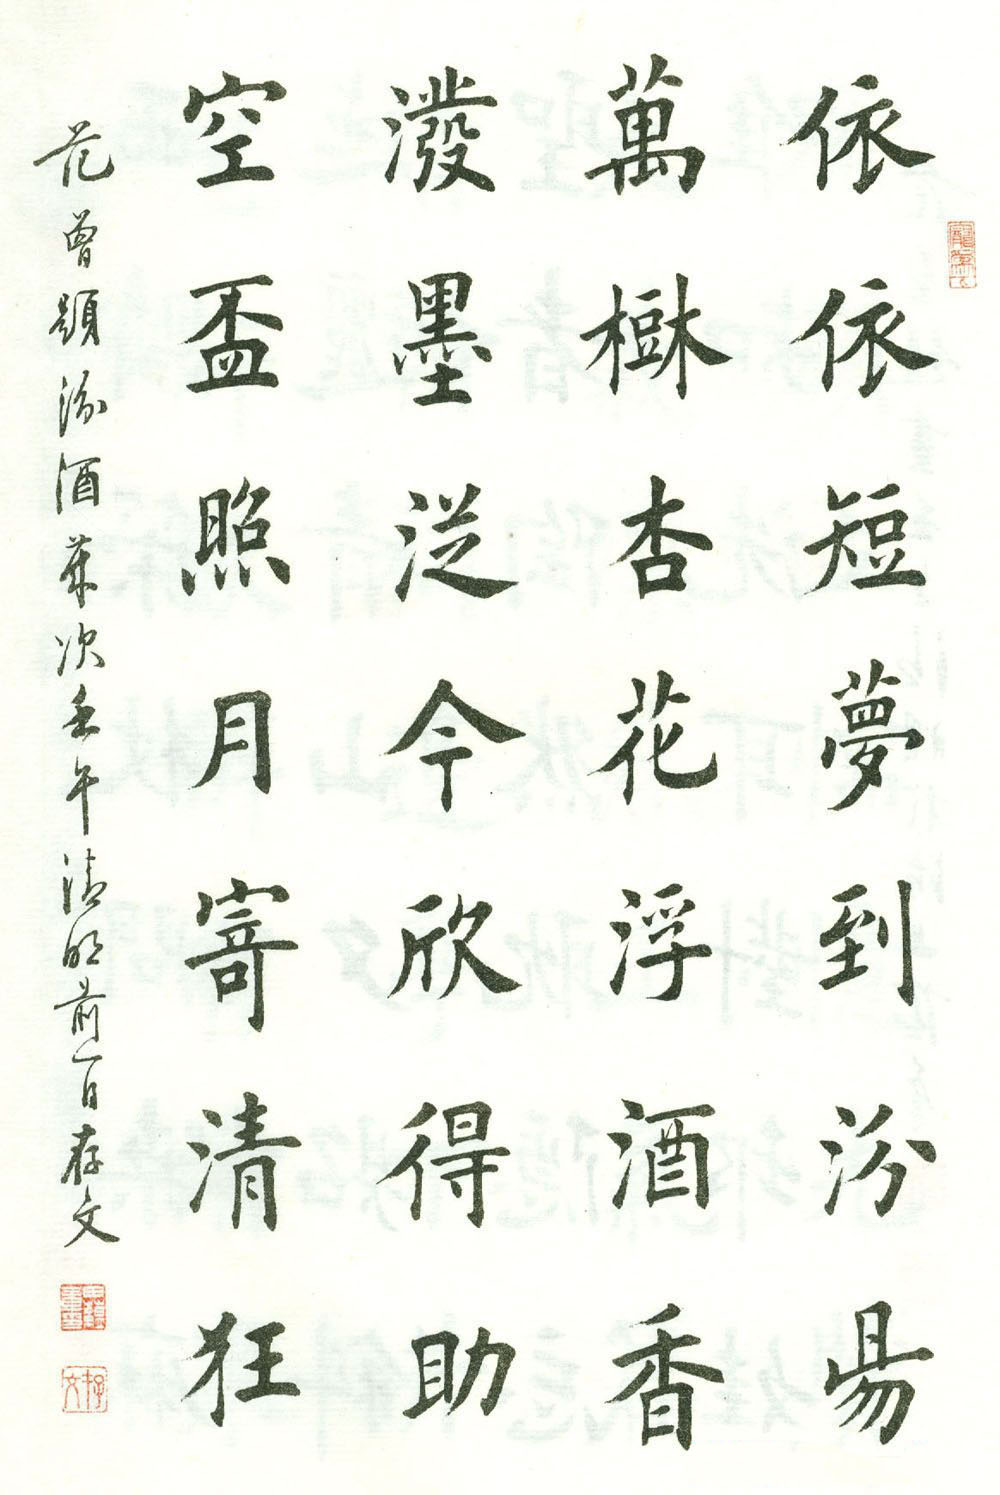 依依短夢到汾昜
萬樹杏花浮酒香
潑墨從今欣得助
空盃照月寄清狂
范曾題汾酒歲次壬午清明前一日存文
存文